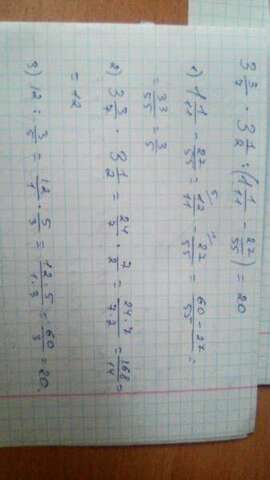 3 3/7 · 3 1/2 : (1 1/11 - 27/55) = 20
1) 1 1/11 - 27/55 = 12/11 - 27/55 = 60-27/55 =
= 33/55 = 3/5
2) 3 3/7 · 3 1/2 = 24/7 · 7/2 = 24·7/7·2 = 168/14 =
= 12
3) 12 : 3/5 = 12/1 · 5/3 = 12·5/1·3 = 60/3 = 20.